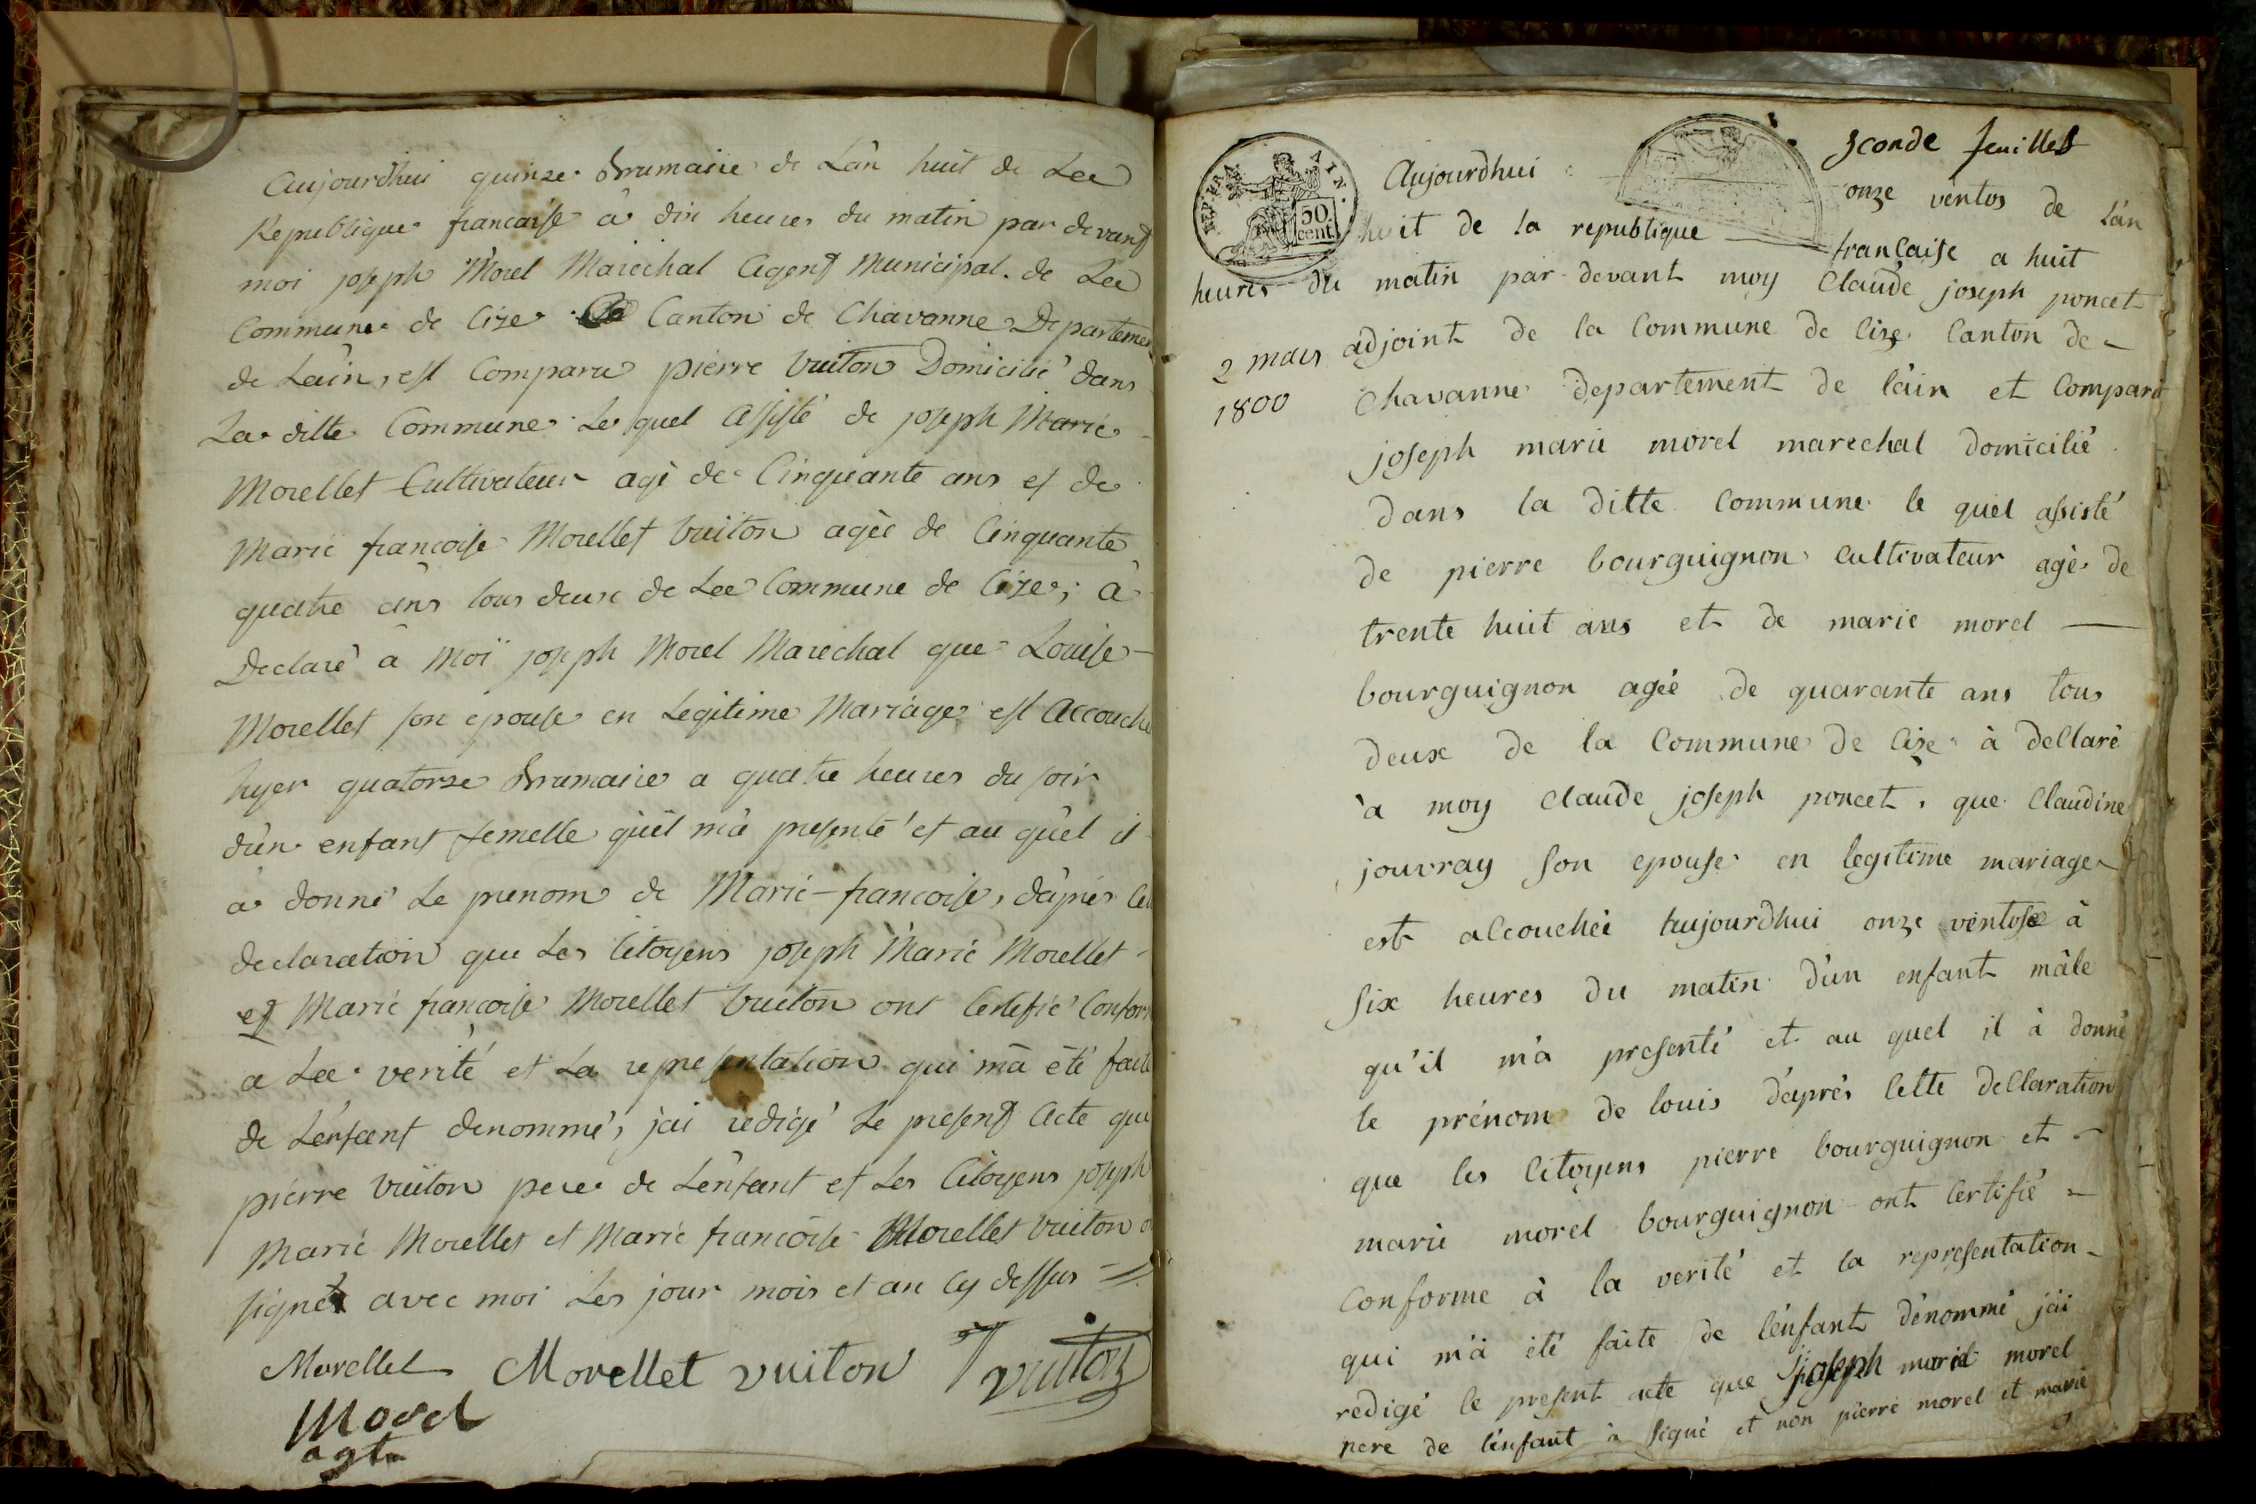 Aujourdhui quinze Brumaire de Lan huit de La
Republique francaise a dix heures du matin par devant
moi joseph Morel Marechal Agent Municipal de La
Commune de Cize Canton de Chavanne Departemen
de Lain, est Comparu pierre Vuiton Domicilié dans
La ditte Commune Le quel Assisté de joseph Marie
Morellet Cultivateur agé de Cinquante ans et de
Marie francoise Morellet Vuiton agèe de Cinquante
quatre ans tous deux de La Commune de Cize; à
Declaré a Moi joseph Morel Marechal que Louise
Morellet son epouse en Legitime Mariage est Accouche
hyer quatorze Brumaire a quatre heures du soir
d'un enfant femelle qu'il m'a presenté et au quel il
a donné Le prenom de Marie-francoise, d'aprés Cet
declaration que Les Citoyens joseph Marie Morellet
et Marie francoise Morellet Vuiton ont Certifié Conform
a La verité et La representation qui m'a été faite
de L'enfant denommé, jai redigé Le present Acte que
pierre Vuiton pere de L'enfant et Les Citoyens joseph
Marie Morellet et Marie francoise Morellet Vuiton o
signé avec moi Les jour mois et an Cy dessus
Morellet Morellet vuiton Vuiton
Morel
agt
REP. FRA. AIN.
50 cent.
sconde feuillet
Aujourdhui onze ventos de Lan
huit de la republique francaise a huit
heures du matin par devant moy Claude joseph poncet
2 mars
1800
adjoint de la Commune de Cize Canton de
Chavanne departement de l'ain et Comparu
joseph marie morel marechal domicilié
dans la ditte Commune le quel assisté
de pierre bourguignon cultivateur agè de
trente huit ans et de marie morel
bourguignon agée de quarante ans tous
deux de la Commune de Cize à declarè
à moy claude joseph poncet, que Claudine
jouvray son epouse en legitime mariage
est accouchée aujourdhui onze ventose à
six heures du matin d'un enfant mâle
qu'il m'a presenté et au quel il à donné
le prénom de louis d'aprés Cette declaration
que les Citoyens pierre bourguignon et
marie morel bourguignon ont Certifié
Conforme à la verité et la representation
qui m'a été faite de l'enfant dénommé j'ai
redigé le present acte que joseph marie morel
pere de l'enfant à signé et non pierre morel et marie